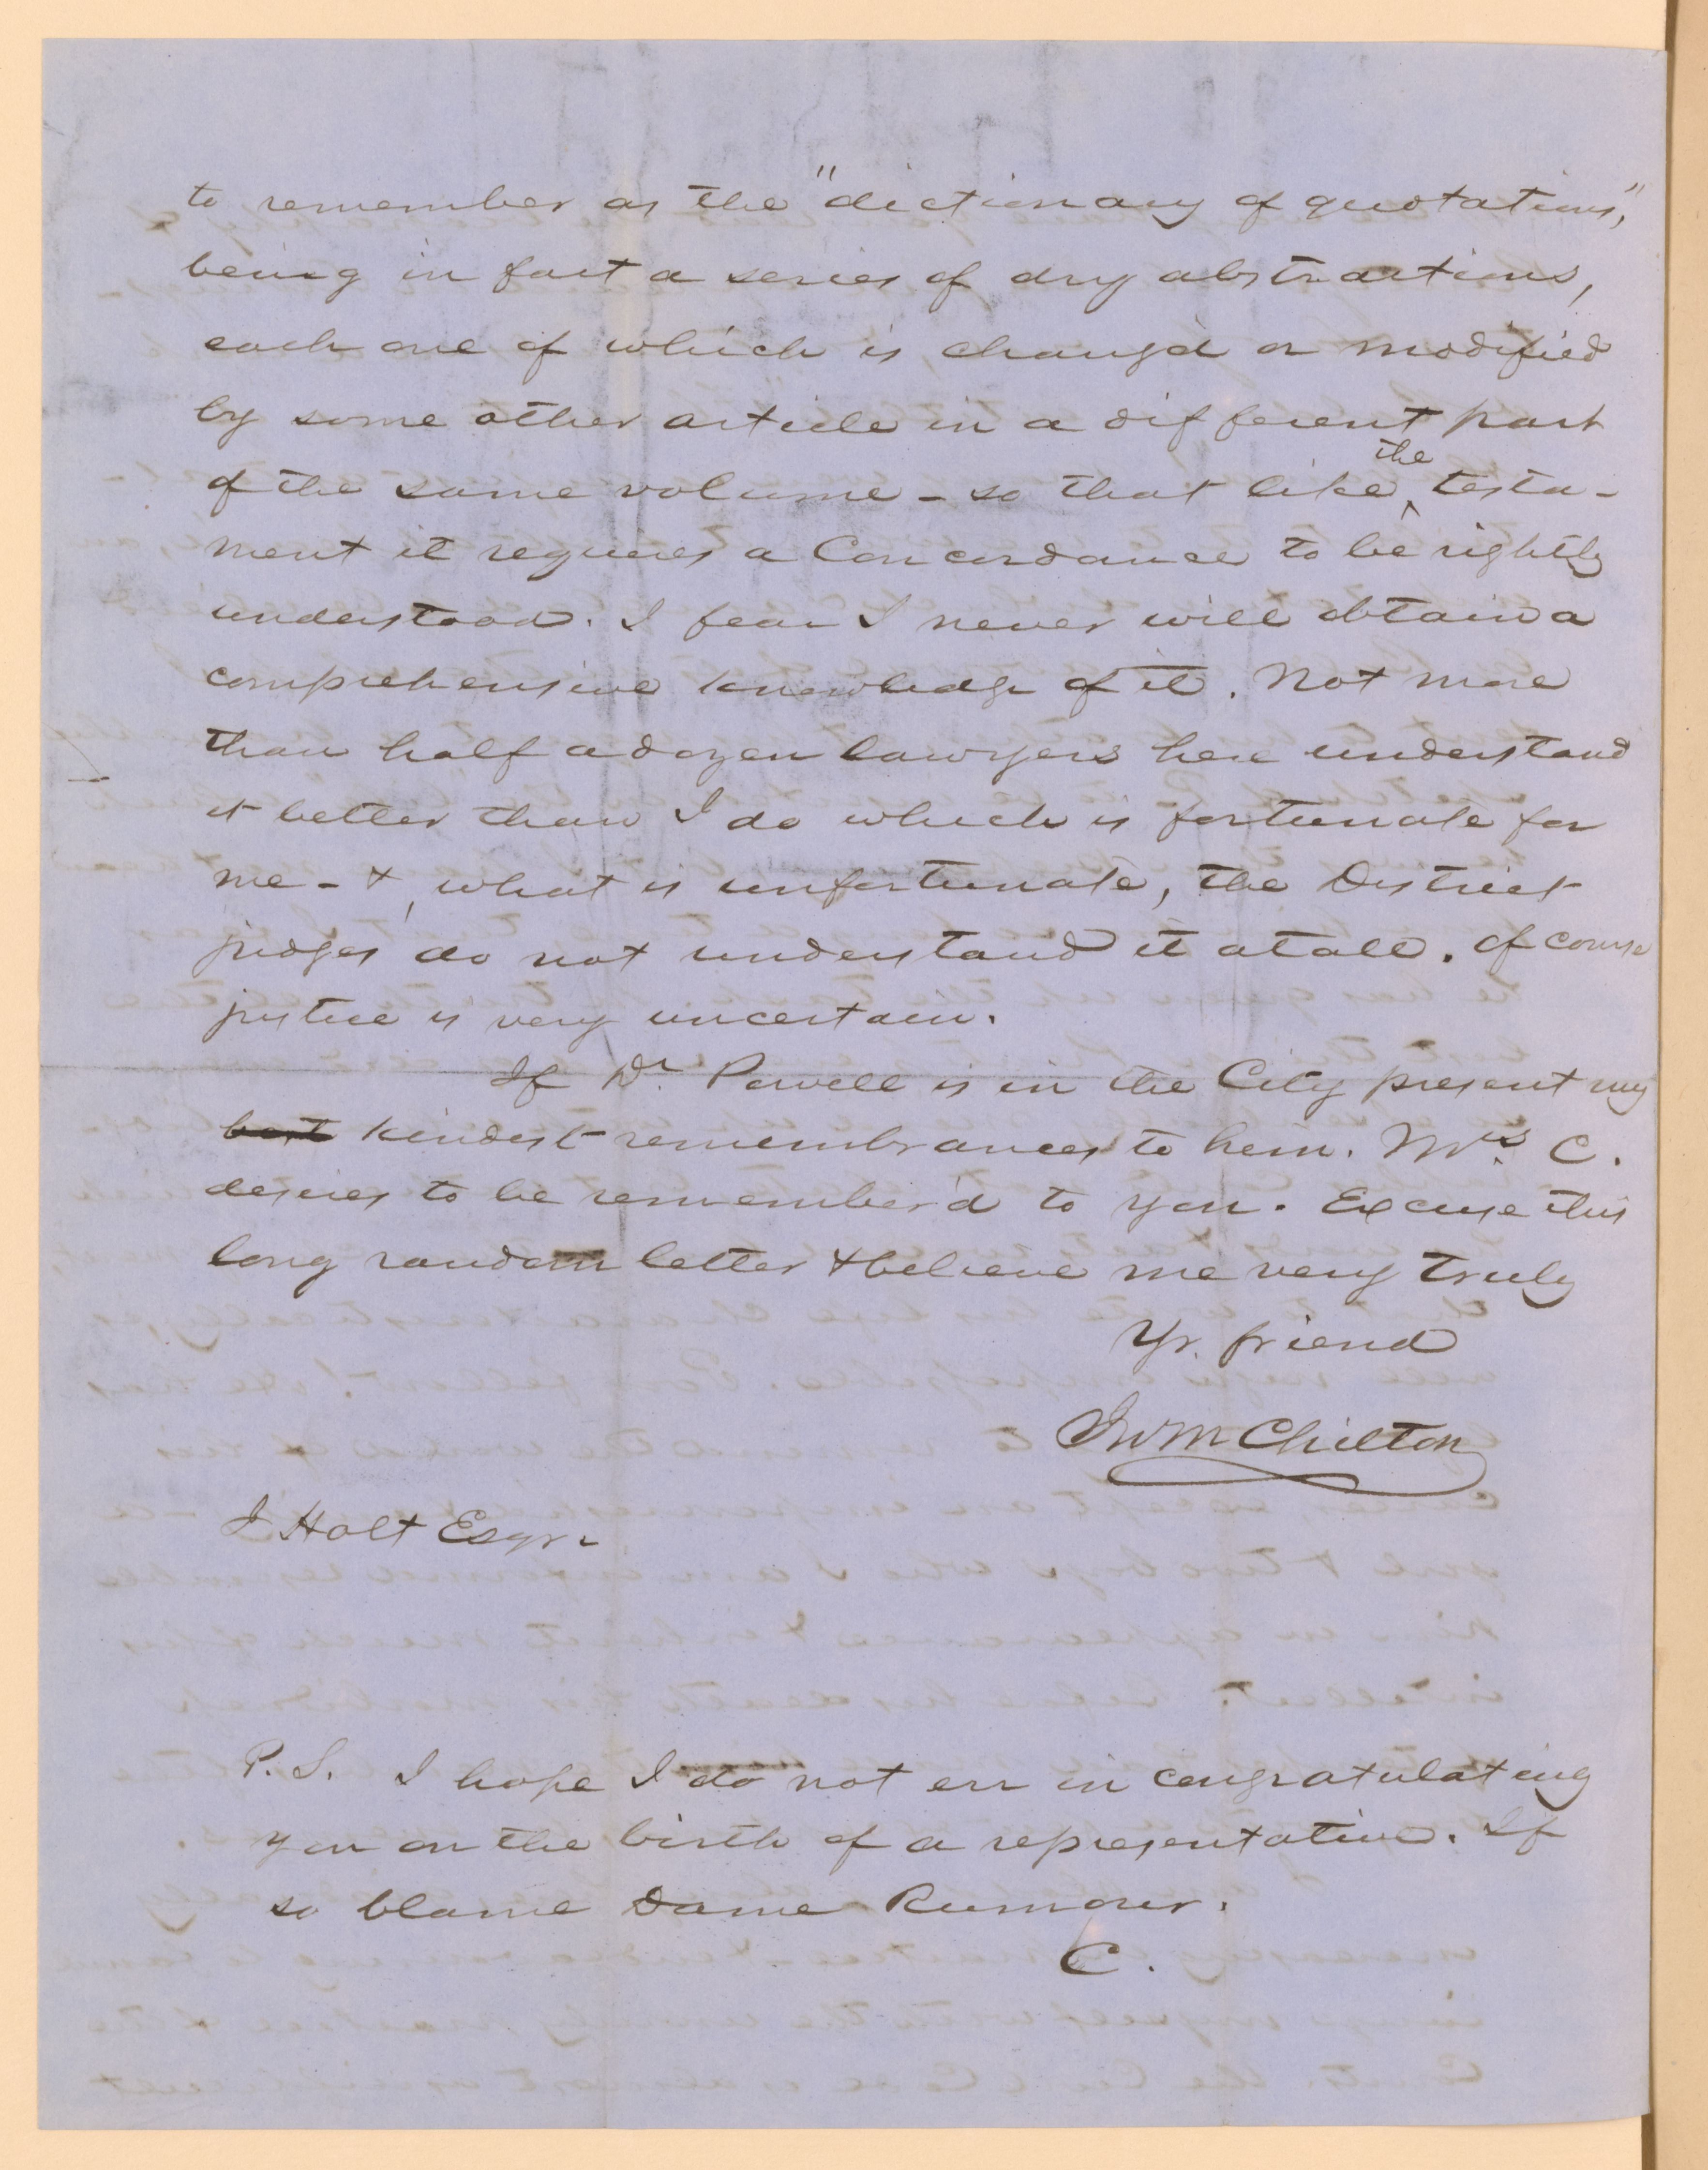 to remember as the "dictionary of quotations",
being in fact a series of dry abstractions,
each one of which is chang'd or modified
by some other article in a different part
of the same volume - so that like the testa-
ment it requires a Concordance to be rightly
understood. I fear I never will obtain a
comprehensive knowledge of it. Not more
than half a dozen lawyers here understand
it better than I do which is fortunate for
me - & , what is unfortunate, the District
judges do not understand it at all. Of course
justice is very uncertain.
If Dr. Powell is in the City present my
best kindest remembrances to him. Mrs. C.
desires to be remember'd to you. Excuse this
long random letter & believe me very truly
Yr. friend
Jno M Chilton
J Holt Esqr.
P.S. I hope I do not err in congratulating
you on the birth of a representative. If
so blame Dame Rumour.
C.